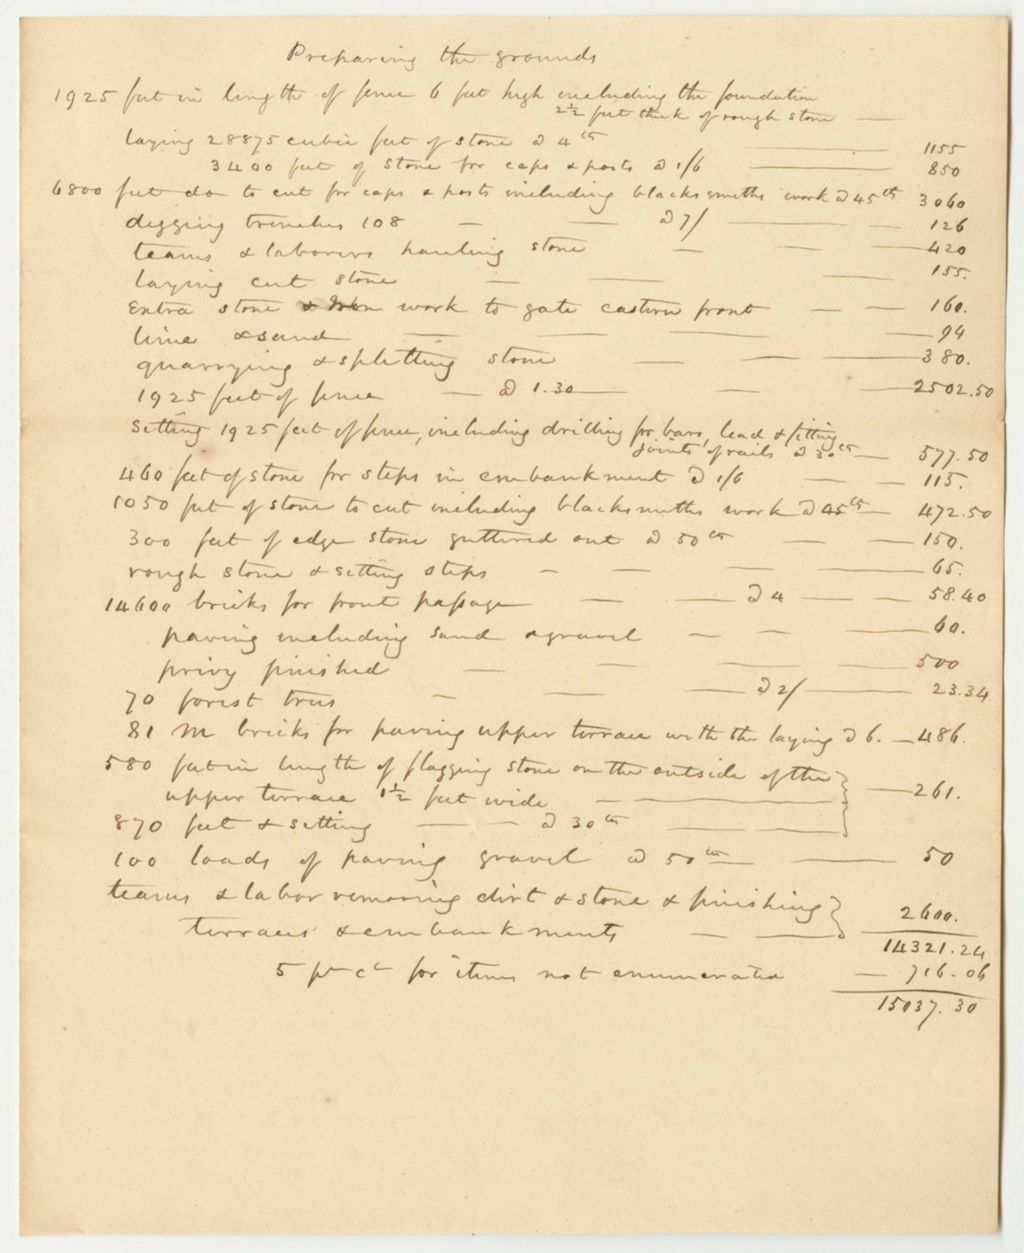 Preparing the grounds
1925 feet in length of fence 6 feet high including the foundation
2½ feet thick of rough stone
laying 28875 cubic feet of stone @ 4 cts 1155
3400 feet of stone for caps & posts @ 1/6 850
6800 feet do to cut for caps & posts including blacksmiths work @ 45 cts 3060
digging trenches 108 @ 7/ 126
teams & laborers hauling stone 420
laying cut stone 155.
Extra stone & work to gate eastern front 160.
lime & sand 94
quarrying & splitting stone 380.
1925 feet of fence @ 1.30 2502.50
Setting 1925 feet of fence, including drilling for bars, lead & fitting
joints of rails @ 30 cts 577.50
460 feet of stone for steps in embankment @ 1/6 115.
1050 feet of stone to cut including blacksmiths work @ 45 cts 472.50
300 feet of edge stone guttered out @ 50 cts 150.
rough stone & setting steps 65.
14600 bricks for front passage @ 4 58.40
paving including sand & gravel 60.
privy finished 500
70 forest trees @ 2/ 23.34
81 M bricks for paving upper terrace with the laying @ 6. 486.
580 feet in length of flagging stone on the outside of the
upper terrace 1½ feet wide 261.
870 feet & setting @ 30 cts
100 loads of paving gravel @ 50 cts 50
teams & labor removing dirt & stone & finishing
terraces & embankments 2600.
14321.24
5 pr ct for items not enumerated 716.06
15037.30